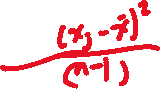 (x, - x̄)²
(n-1)